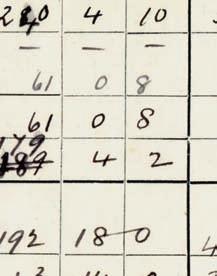 4 10
— — —
61 0 8
61 0 8
179
189 4 2
192 18 0